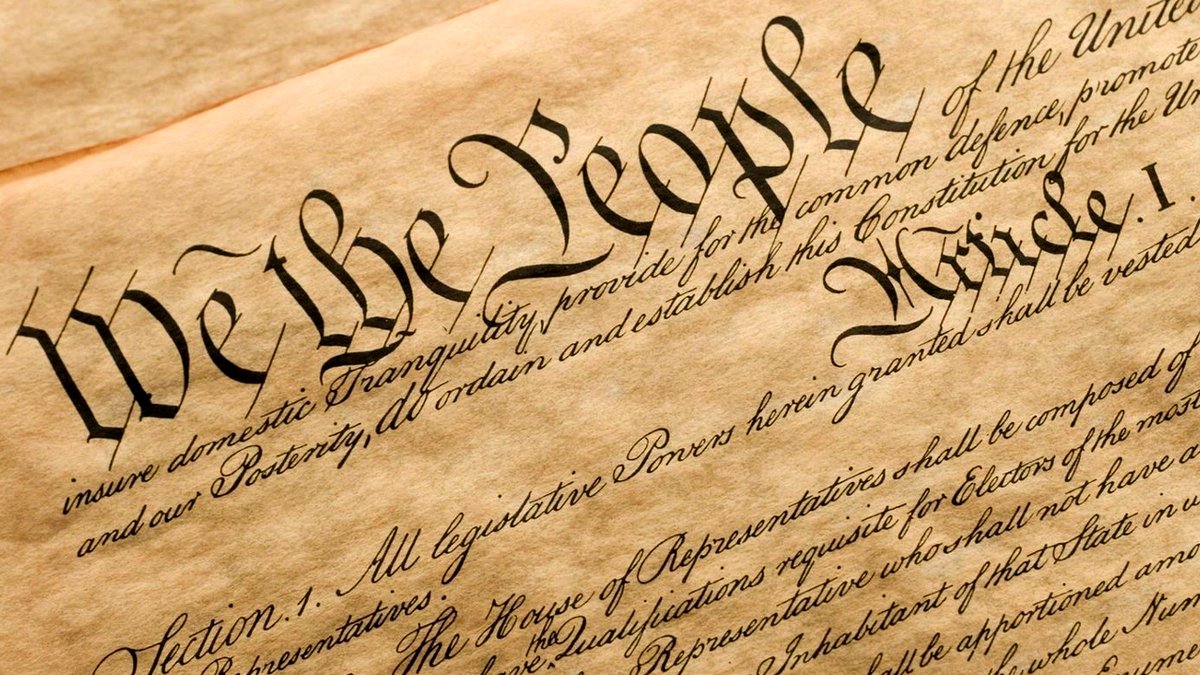 We the People of the United
insure domestic Tranquility, provide for the common defence, promote
and our Posterity, do ordain and establish this Constitution for the Un
Article. I.
Section. 1. All legislative Powers herein granted shall be vested
Representatives.
The House of Representatives shall be composed of
have the Qualifications requisite for Electors of the most
Representative who shall not have a
Inhabitant of that State in w
all be apportioned amo
the whole Num
Enume